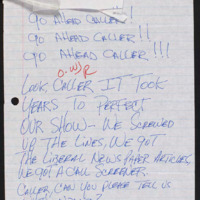 GO AHEAD CALLER!
GO AHEAD CALLER!!
GO AHEAD CALLER!!!
LOOK, CALLER IT TOOK
YEARS TO PERFECT
OUR SHOW - WE SCREWED
UP THE LINES, WE GOT
THE LIBERAL NEWSPAPER ARTICLES,
WE GOT A CALL SCREENER.
CALLER, CAN YOU PLEASE TELL US